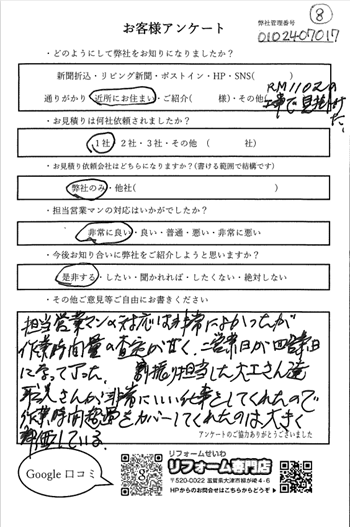 ⑧
お客様アンケート
弊社管理番号
0102407017
・どのようにして弊社をお知りになりましたか？
新聞折込・リビング新聞・ポストイン・HP・SNS(　　　)
通りがかり・近所にお住まい・ご紹介(　　　様)・その他(
RM1102の
工事で見かけ
た。
・お見積りは何社依頼されましたか？
1社　2社・3社・その他　(　　　社)
・お見積り依頼会社はどちらになりますか？(書ける範囲で結構です)
弊社のみ・他社(　　　)
・担当営業マンの対応はいかがでしたか？
非常に良い・良い・普通・悪い・非常に悪い
・今後お知り合いに弊社をご紹介しようと思いますか？
是非する・したい・聞かれれば・したくない・絶対しない
・その他ご意見等ご自由にお書きください
担当営業マンの対応は非常によかったが
作業時間量の査定が甘く、二営業日が四営業日
になって了った。割振り担当した大工さん達
職人さんが非常にいい仕事をしてくれたので
作業時間超過をカバーしてくれたのは大きく
評価している。
アンケートのご協力ありがとうございました
Google口コミ
リフォームせいわ
リフォーム専門店
〒520-0022 滋賀県大津市柳が崎4-6
HPからのお問合せはこちらからどうぞ